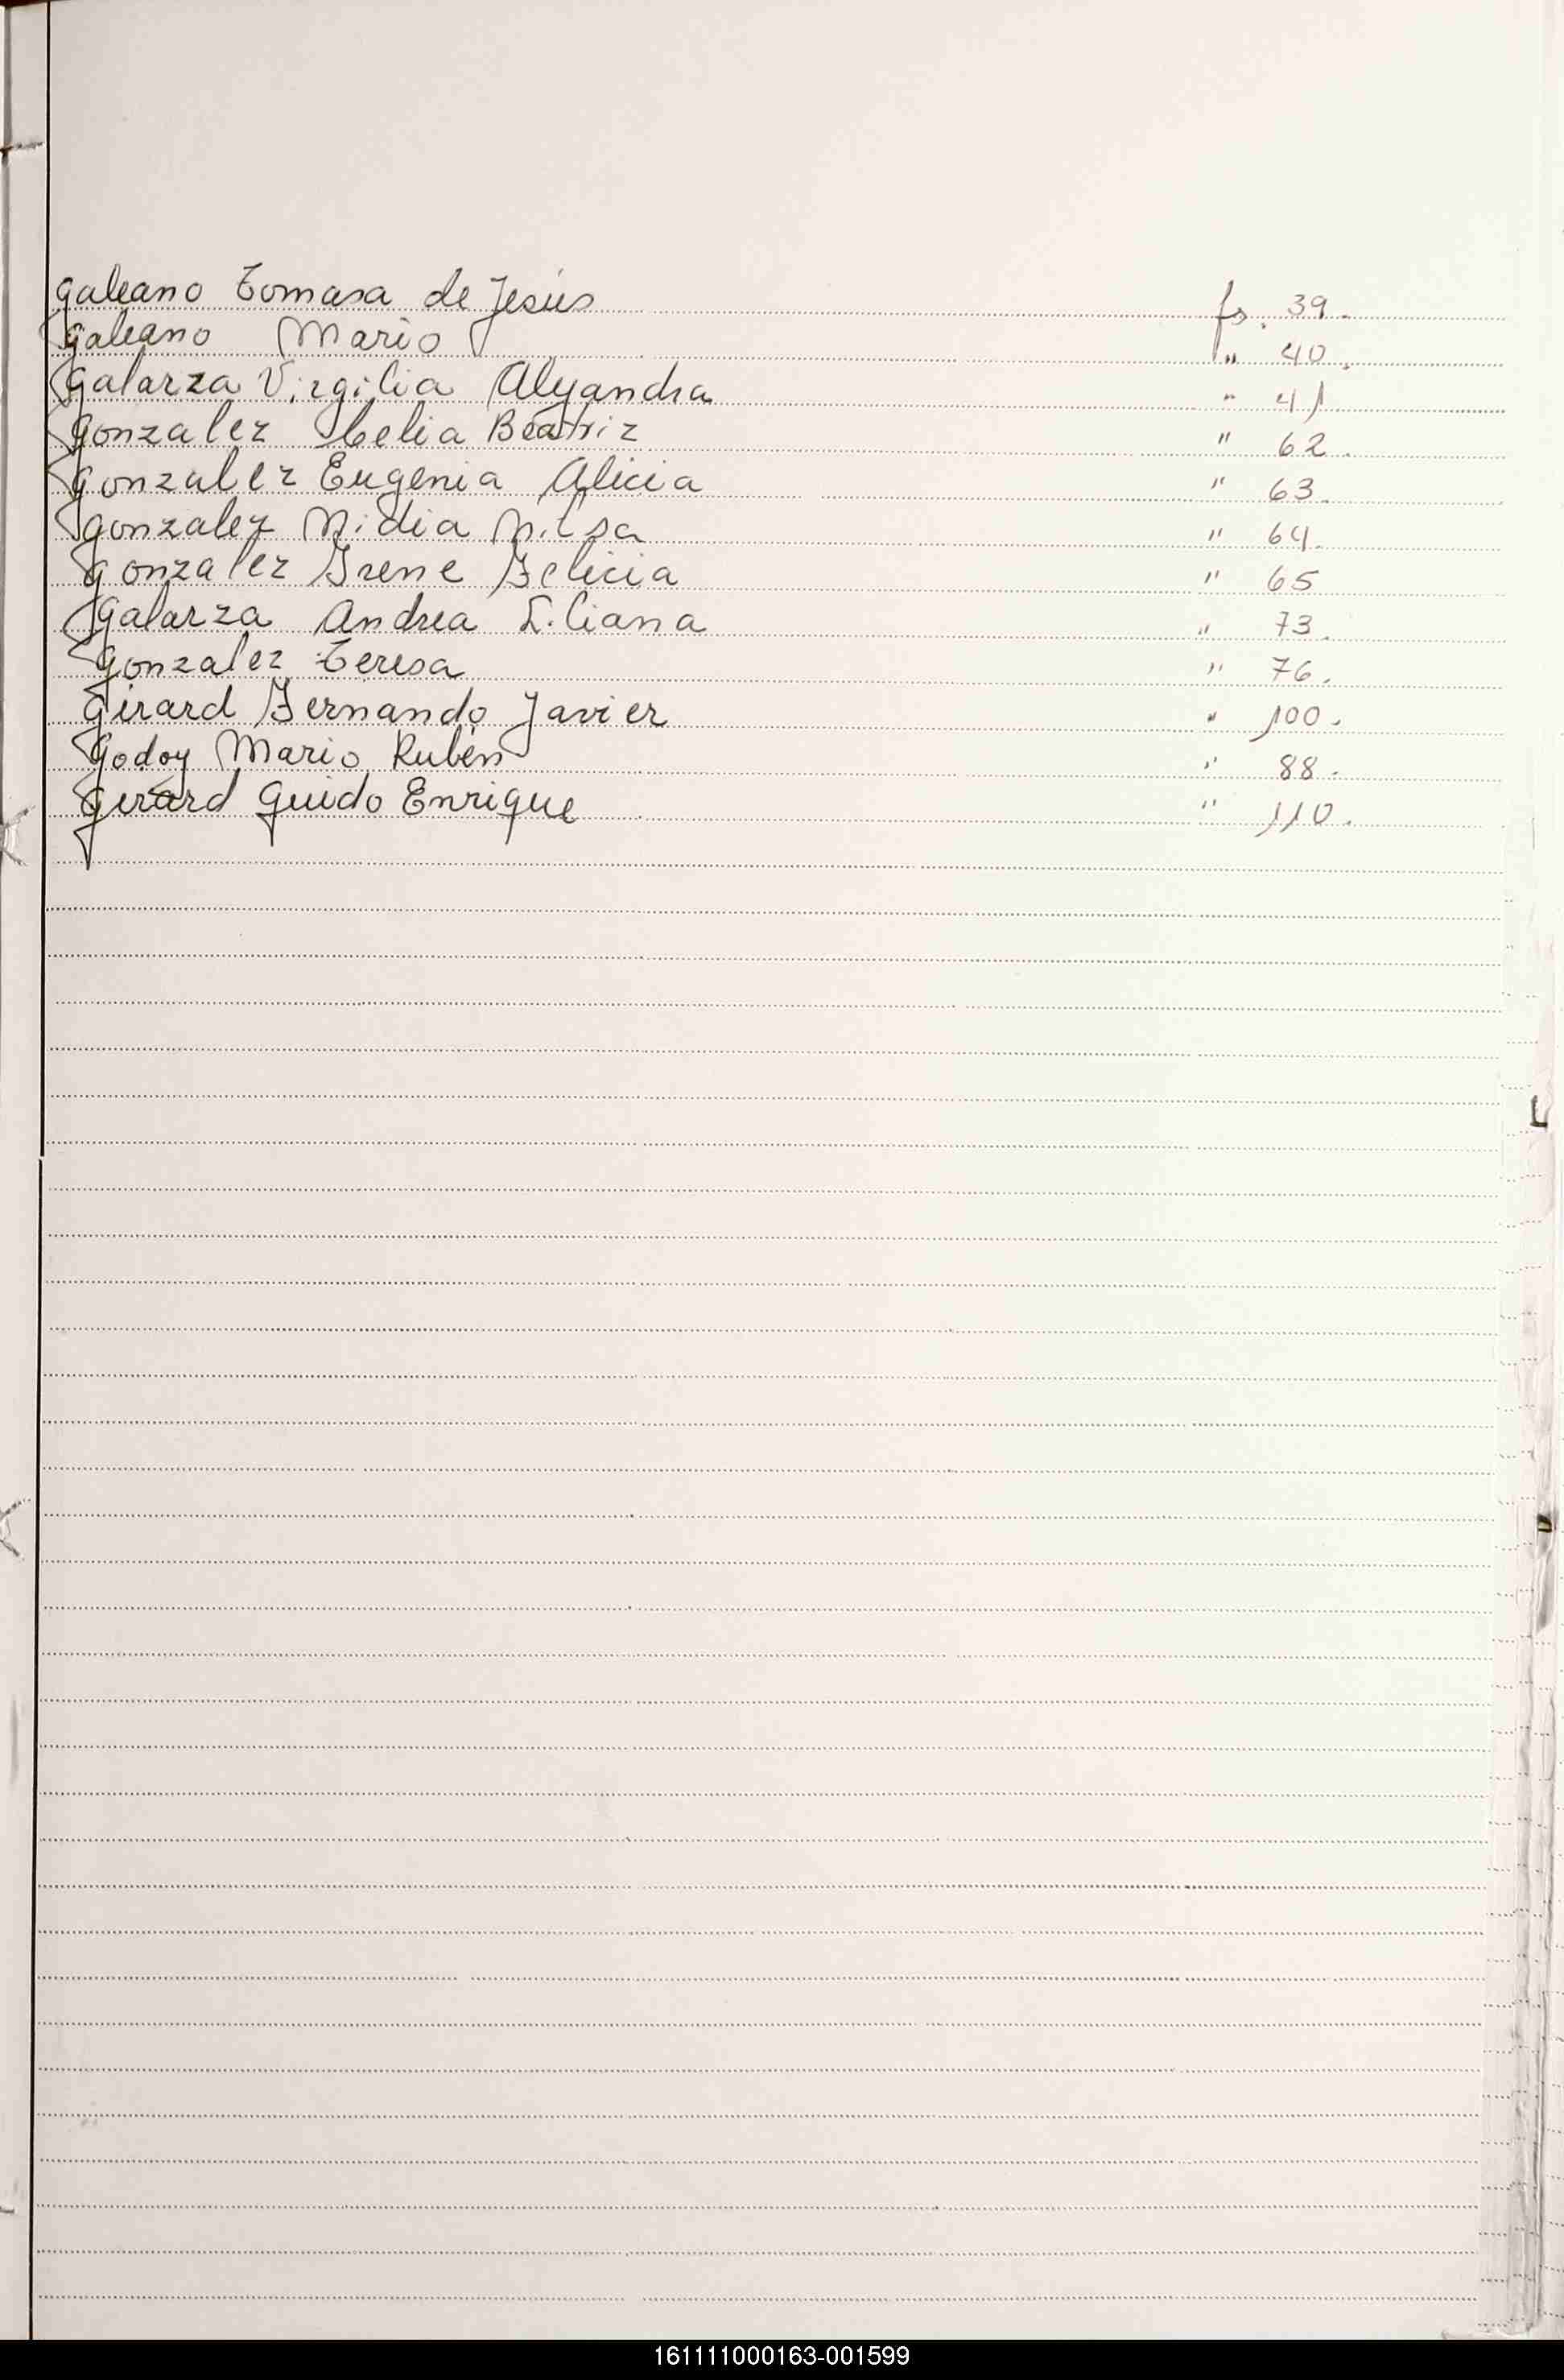 Galeano Tomasa de Jesús fs. 39.
Galeano Mario " 40.
Galarza Virgilia Alejandra " 41
Gonzalez Celia Beatriz " 62.
Gonzalez Eugenia Alicia " 63.
Gonzalez Nidia Nilsa " 64.
Gonzalez Irene Felicia " 65
Galarza Andrea Liliana " 73.
Gonzalez Teresa " 76.
Girard Fernando Javier " 100.
Godoy Mario Rubén " 88.
Gerard Guido Enrique " 110.
161111000163-001599